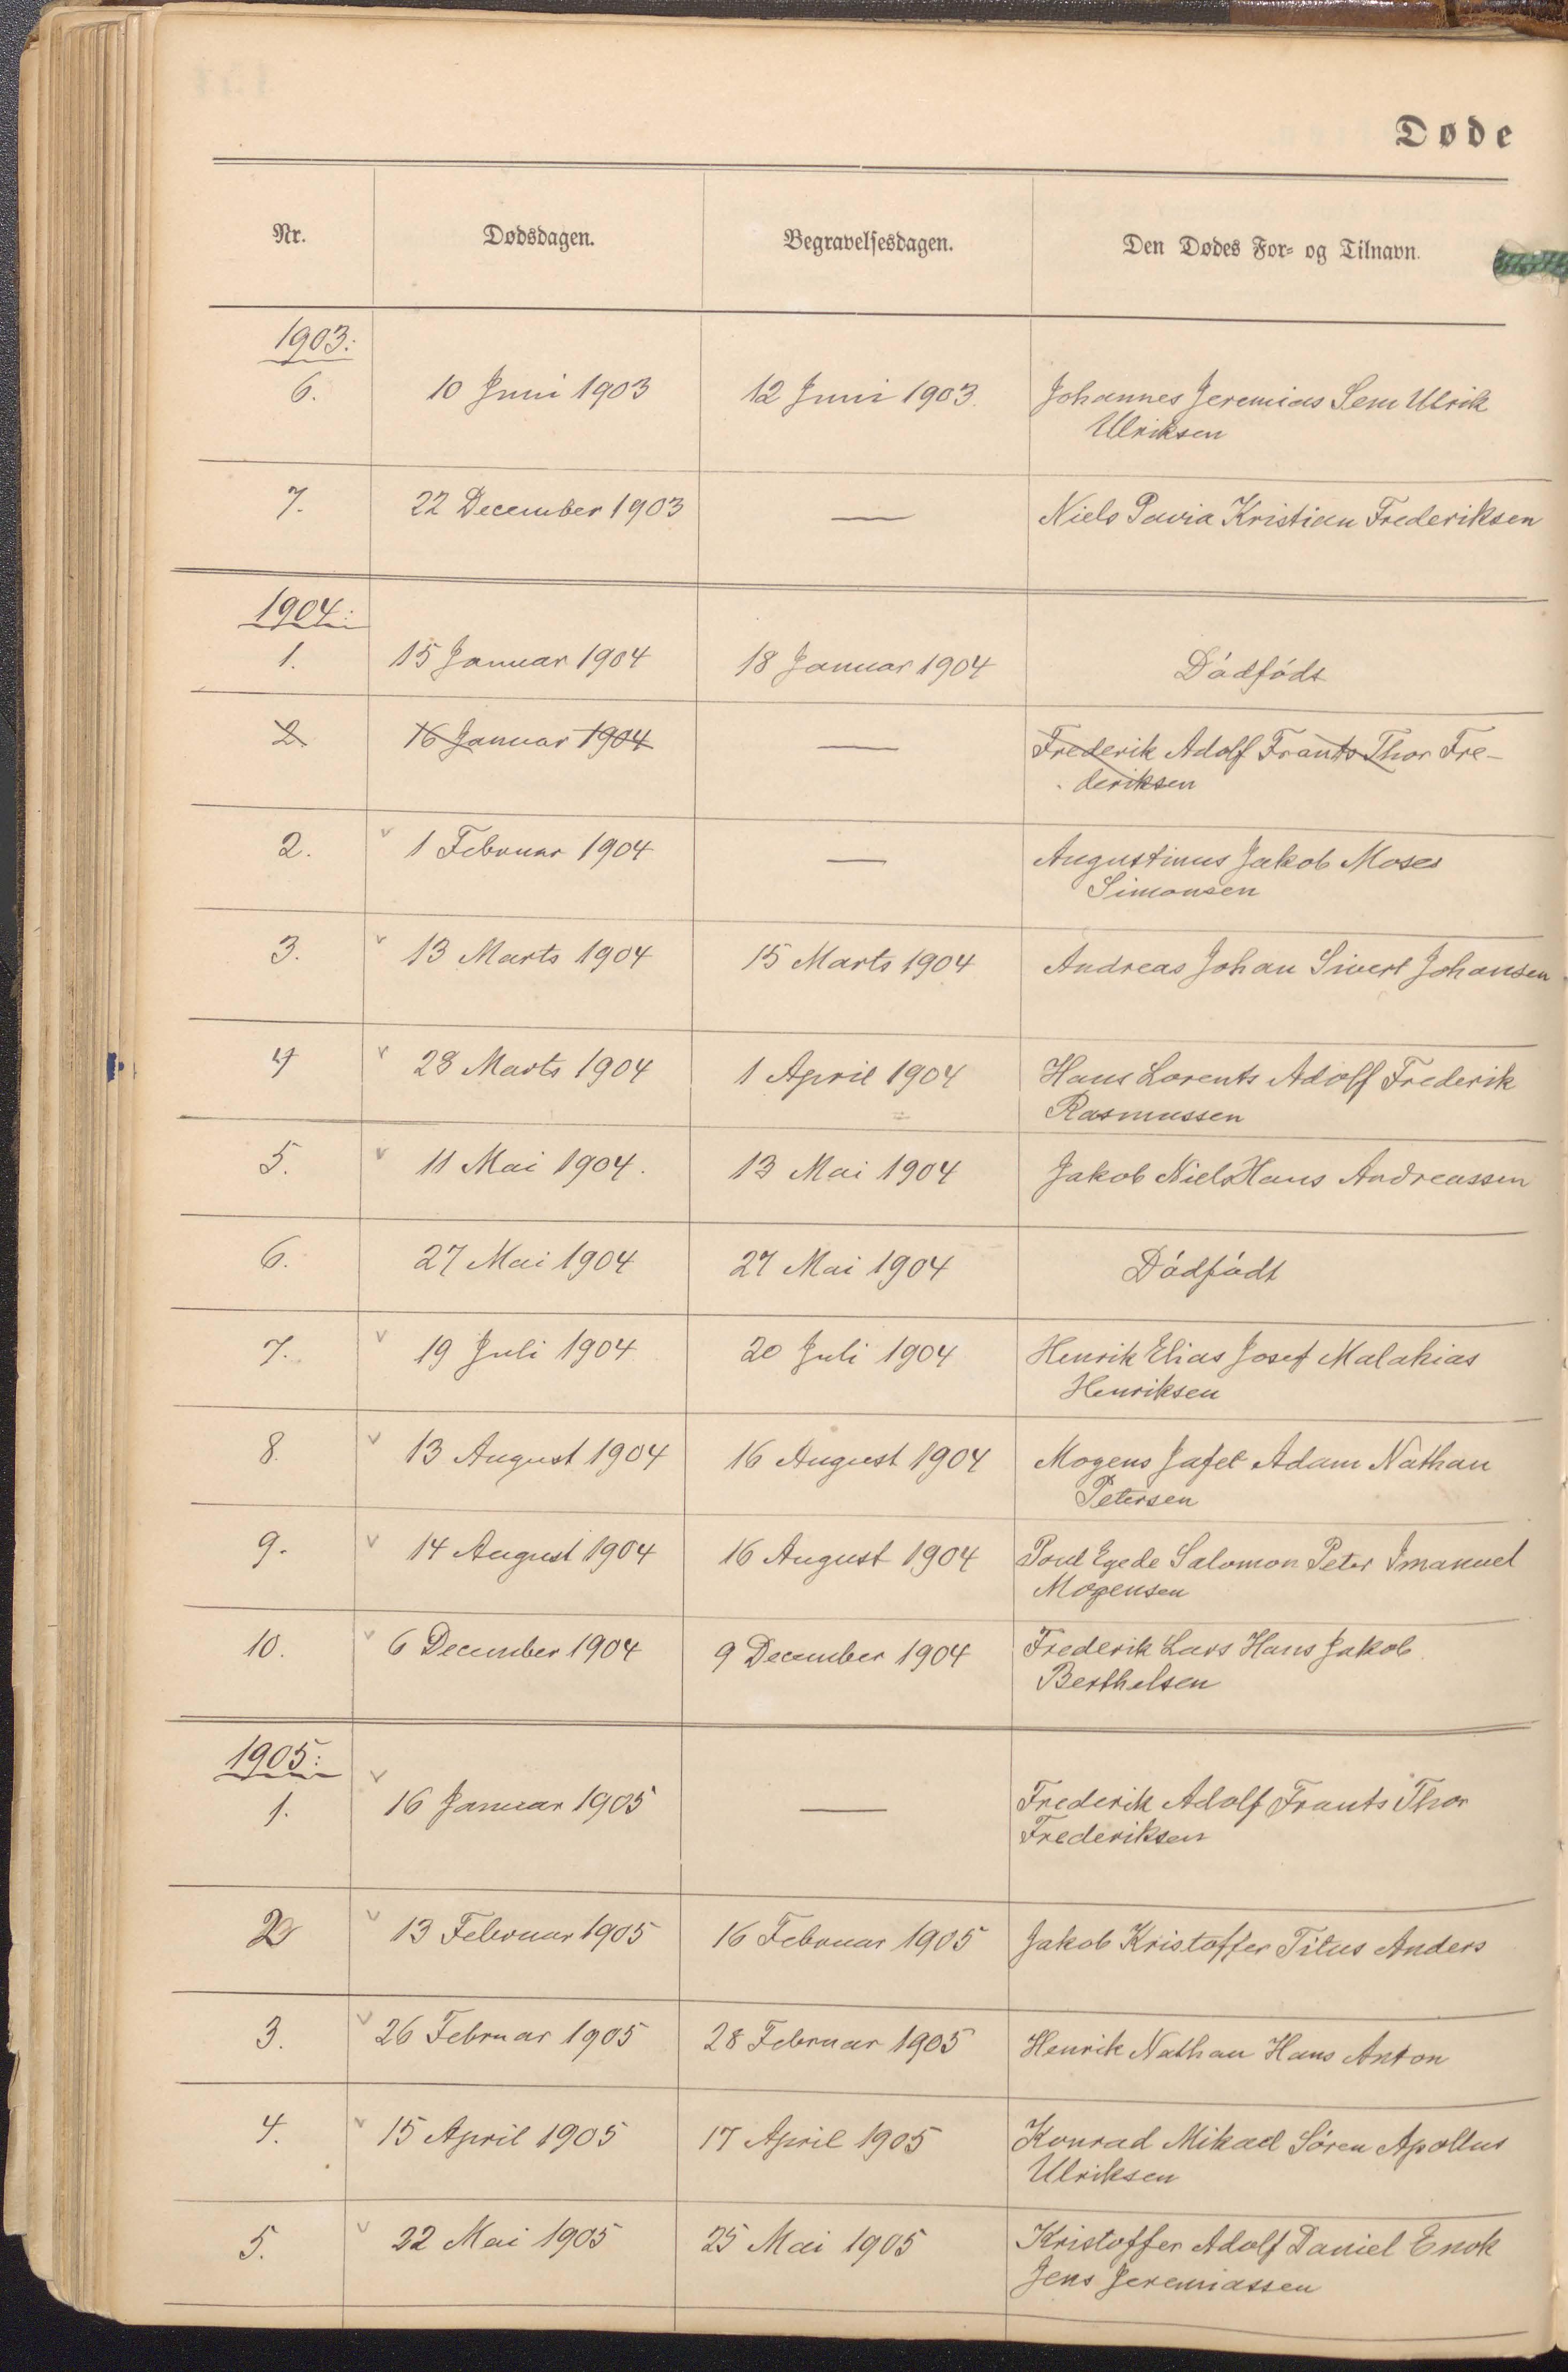 Døde
Nr. Dødsdagen. Begravelsesdagen. Den Dødes For- og Tilnavn.
1903:
6. 10 Juni 1903 12 Juni 1903. Johannes Jeremias Sem Ulrik
Ulriksen
7. 22 December 1903 — Niels Pavia Kristian Frederiksen
1904:
1. 15 Januar 1904 18 Januar 1904 Dódfódt
2 16 Januar 1904 — Frederik Adolf Frants Thor Fre-
deriksen
2. v 1 Februar 1904 — Augustinus Jakob Moses
Simonsen
3. v 13 Marts 1904 15 Marts 1904 Andreas Johan Sivert Johansen
4 v 28 Marts 1904 1 April 1904 Hans Lorents Adolf Frederik
Rasmussen
5. v 11 Mai 1904. 13 Mai 1904 Jakob Niels Hans Andreassen
6. 27 Mai 1904 27 Mai 1904 Dódfódt
7. v 19 Juli 1904 20 Juli 1904 Henrik Elias Josef Malakias
Henriksen
8. v 13 August 1904 16 August 1904 Mogens Jafet Adam Nathan
Petersen
9. v 14 August 1904 16 August 1904 Poul Egede Salomon Peter Imanuel
Mogensen
10. v 6 December 1904 9 December 1904 Frederik Lars Hans Jakob
Berthelsen
1905:
1. v 16 Januar 1905 — Frederik Adolf Frants Thor
Frederiksen
2 v 13 Februar 1905 16 Februar 1905 Jakob Kristoffer Titus Anders
3. v 26 Februar 1905 28 Februar 1905 Henrik Nathan Hans Anton
4. v 15 April 1905 17 April 1905 Konrad Mikael Sóren Apollus
Ulriksen
5. v 22 Mai 1905 25 Mai 1905 Kristoffer Adolf Daniel Enok
Jens Jeremiassen